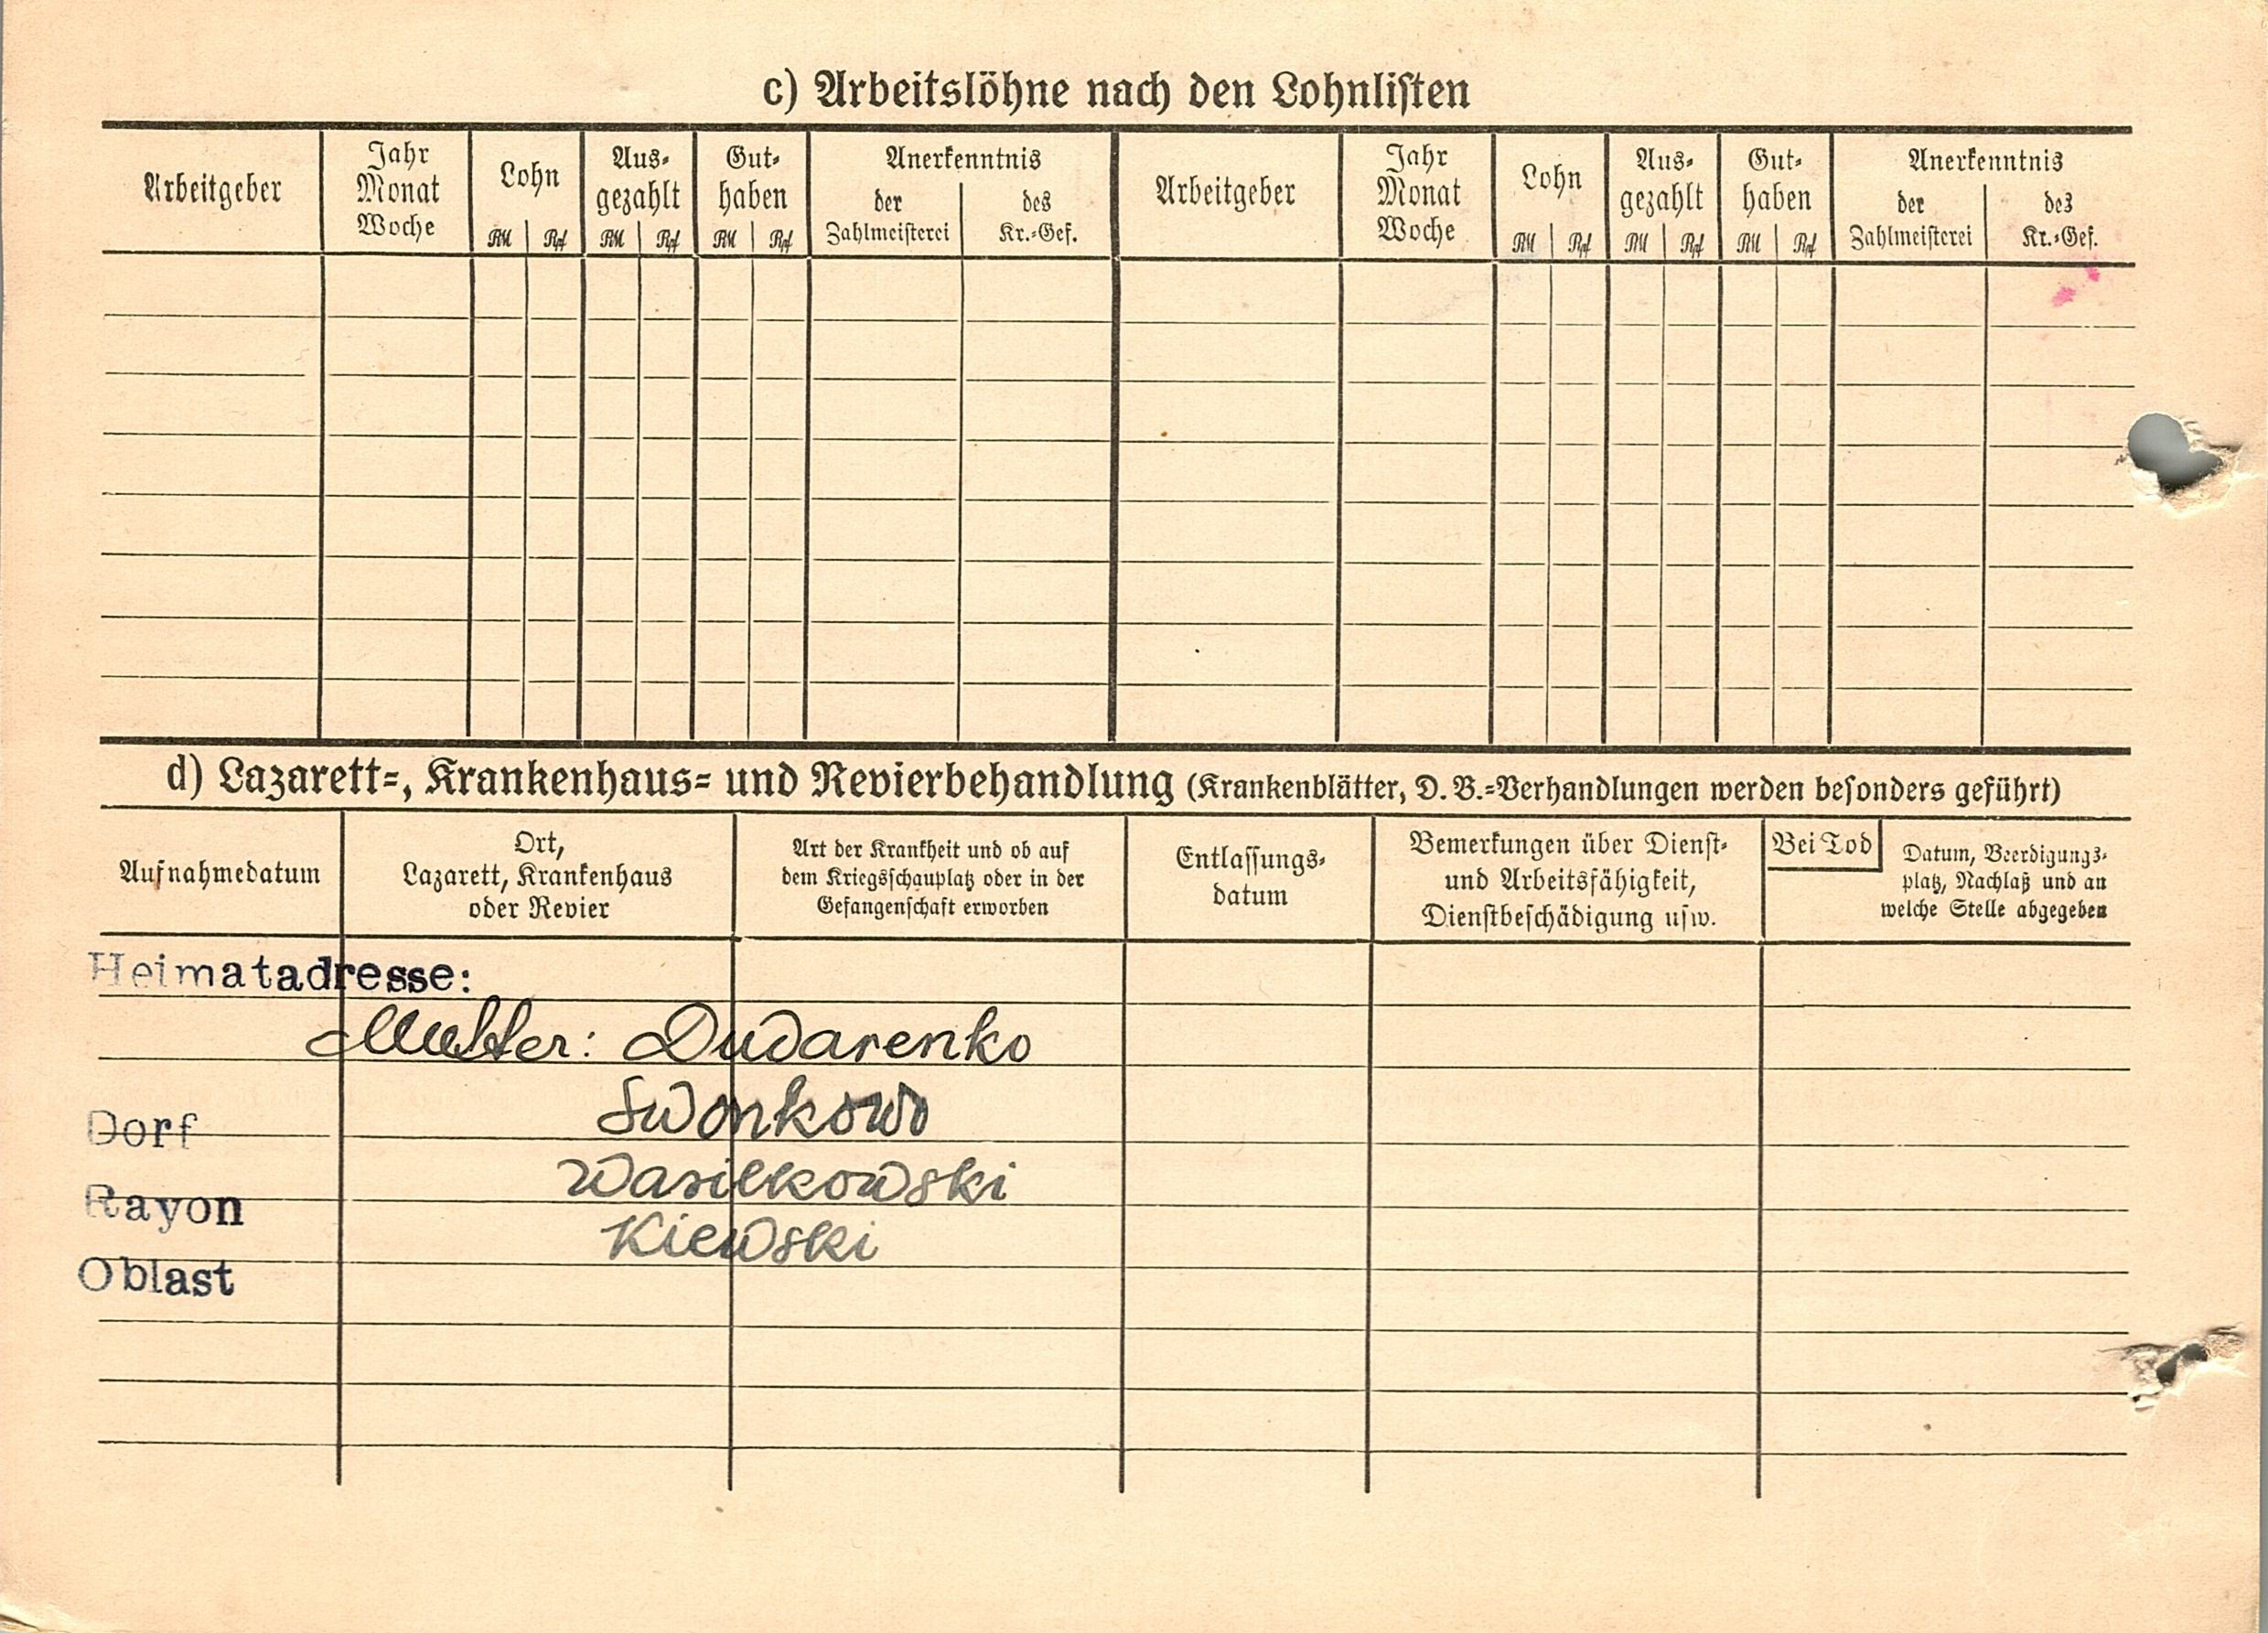 c) Arbeitslöhne nach den Lohnlisten
Arbeitgeber
Jahr
Monat
Woche
Lohn
RM | Rpf
Aus-
gezahlt
RM | Rpf
Gut-
haben
RM | Rpf
Anerkenntnis
der
Zahlmeisterei
des
Kr.-Gef.
Arbeitgeber
Jahr
Monat
Woche
Lohn
RM | Rpf
Aus-
gezahlt
RM | Rpf
Gut-
haben
RM | Rpf
Anerkenntnis
der
Zahlmeisterei
des
Kr.-Gef.
d) Lazarett-, Krankenhaus- und Revierbehandlung (Krankenblätter, D. B.-Verhandlungen werden besonders geführt)
Aufnahmedatum
Ort,
Lazarett, Krankenhaus
oder Revier
Art der Krankheit und ob auf
dem Kriegsschauplatz oder in der
Gefangenschaft erworben
Entlassungs-
datum
Bemerkungen über Dienst-
und Arbeitsfähigkeit,
Dienstbeschädigung usw.
Bei Tod
Datum, Beerdigungs-
platz, Nachlaß und an
welche Stelle abgegeben
Heimatadresse:
Mutter: Dudarenko
Dorf Swonkowo
Rayon Wasilkowski
Oblast Kiewski